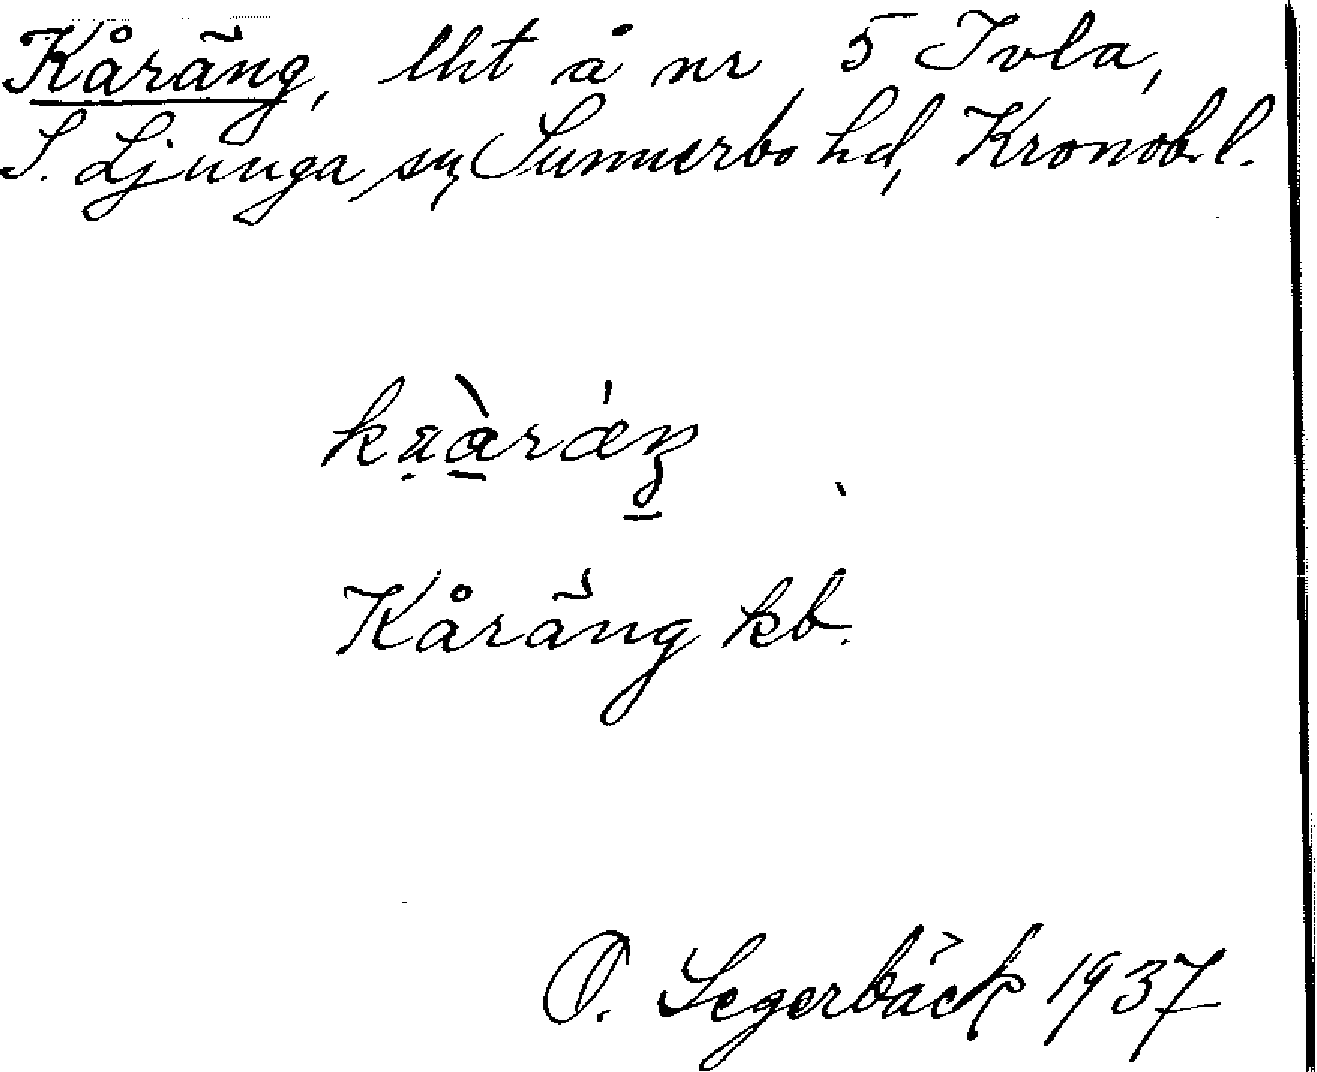 Kåräng, lht å nr 5 Ivla,
S. Ljunga sn, Sunnerbo hd, Kronob. l.
Kåräng kb.
O. Segerbäck 1937